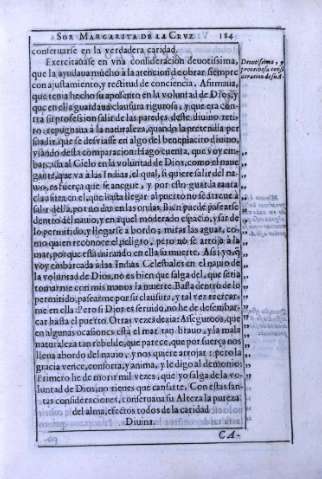 SOR MARGARITA DE LA CRVZ 184
conseruarse en la verdadera caridad.
Exercitauase en vna consideracion deuotissima,
que la ayudaua mucho à la atencion de obrar siempre
con ajustamiento, y rectitud de conciencia. Afirmaua,
que tenia hecho su aposento en la voluntad de Dios, y
que en ella guardaua clausura rigurosa, y que era con-
tra su profession salir de las paredes deste diuino reti-
ro: repugnaua à la naturaleza, quando la pretendia per
suadir, que se desuiasse en algo del beneplacito diuino,
vsando desta comparacion: Hago cuenta, que voy em-
barcada al Cielo en la voluntad de Dios, como el naue
gante, que và a las Indias, el qual, si quiere salir del na-
uio, es fuerça que se anegue, y por esto guarda tanta
clausura en el, que hasta llegar al puerto no se atreue à
salir del, por no dar en las ondas. Bien puede passearse
dentro del nauio, y en aquel moderado espacio, vsar de
lo permitido, y llegarse a bordo, mirar las aguas, co-
mo quien reconoce el peligro, pero no se arroja à la
mar, porque està mirando en ella su muerte. Assi yo, q̃
voy embarcada a las Indias Celestiales en el nauio de
la voluntad de Dios, no es bien que salga del, que seria
tomarme con mis manos la muerte. Basta dentro de lo
permitido, passearme por su clausura, y tal vez recrear
me en ella. Pero si Dios es seruido, no he de desembar-
car hasta el puerto. Otras vezes dezia: Asseguroos, que
en algunas ocasiones està el mar tan brauo, y la mala
naturaleza tan rebelde, que parece, que por fuerça nos
lleua abordo del nauio, y nos quiere arrojar; pero la
gracia vence, conforta, y anima, y le digo al demonio:
Primero he de morir mil vezes, que yo salga de la vo-
luntad de Dios: no tienes que cansarte. Con estas san-
tas consideraciones, conseruaua su Alteza la pureza
del alma, efectos todos de la caridad
Diuina.
CA-
Deuotissima, y